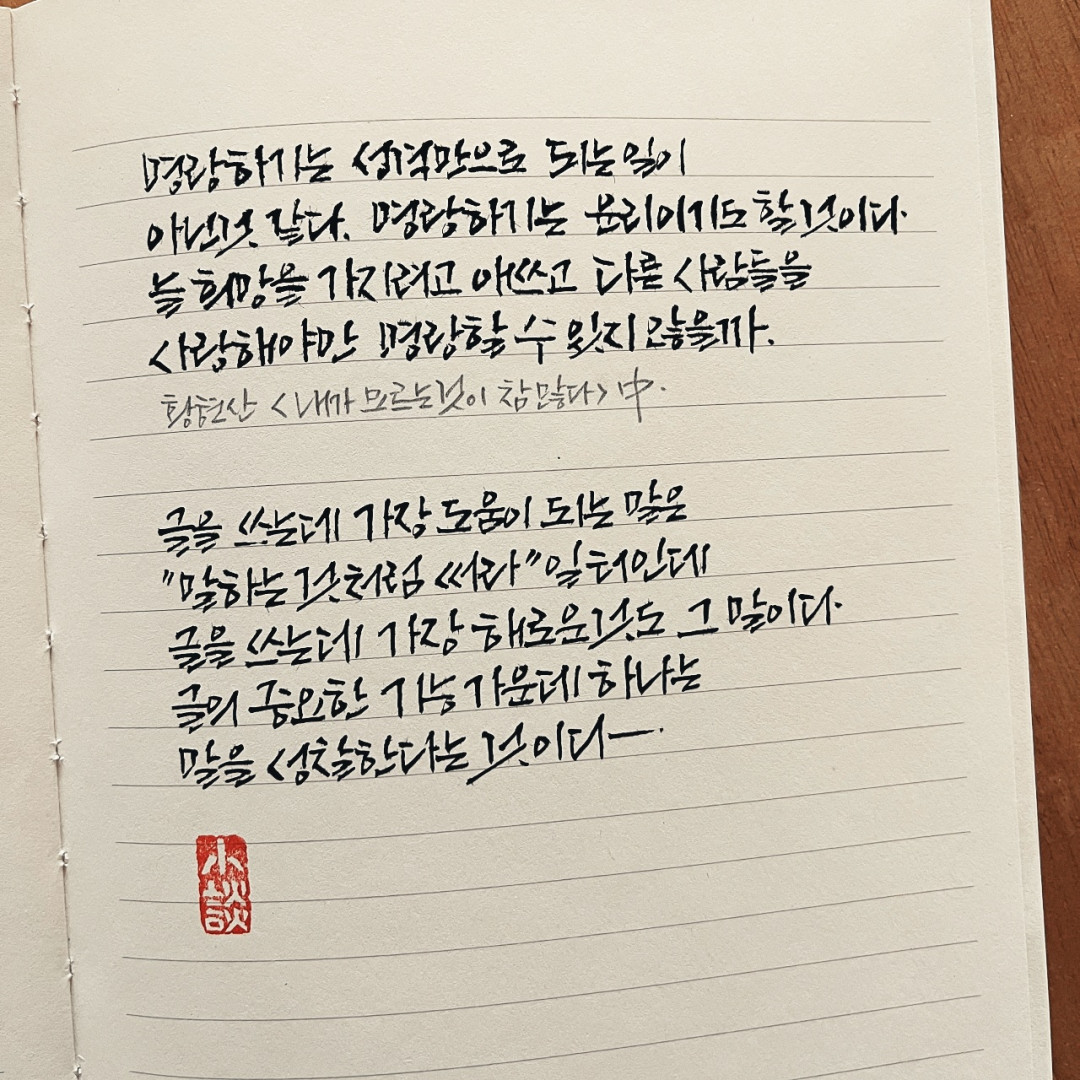 명랑하기는 성격만으로 되는 일이
아닌것 같다. 명랑하기는 윤리이기도 할 것이다.
늘 희망을 가지려고 애쓰고 다른 사람들을
사랑해야만 명랑할 수 있지 않을까.
황현산 <내가 모르는 것이 참 많다> 中.
글을 쓰는데 가장 도움이 되는 말은
"말하는 것처럼 써라"일 터인데
글을 쓰는데 가장 해로운것도 그 말이다.
글의 중요한 기능 가운데 하나는
말을 성찰한다는 것이다―.
小談